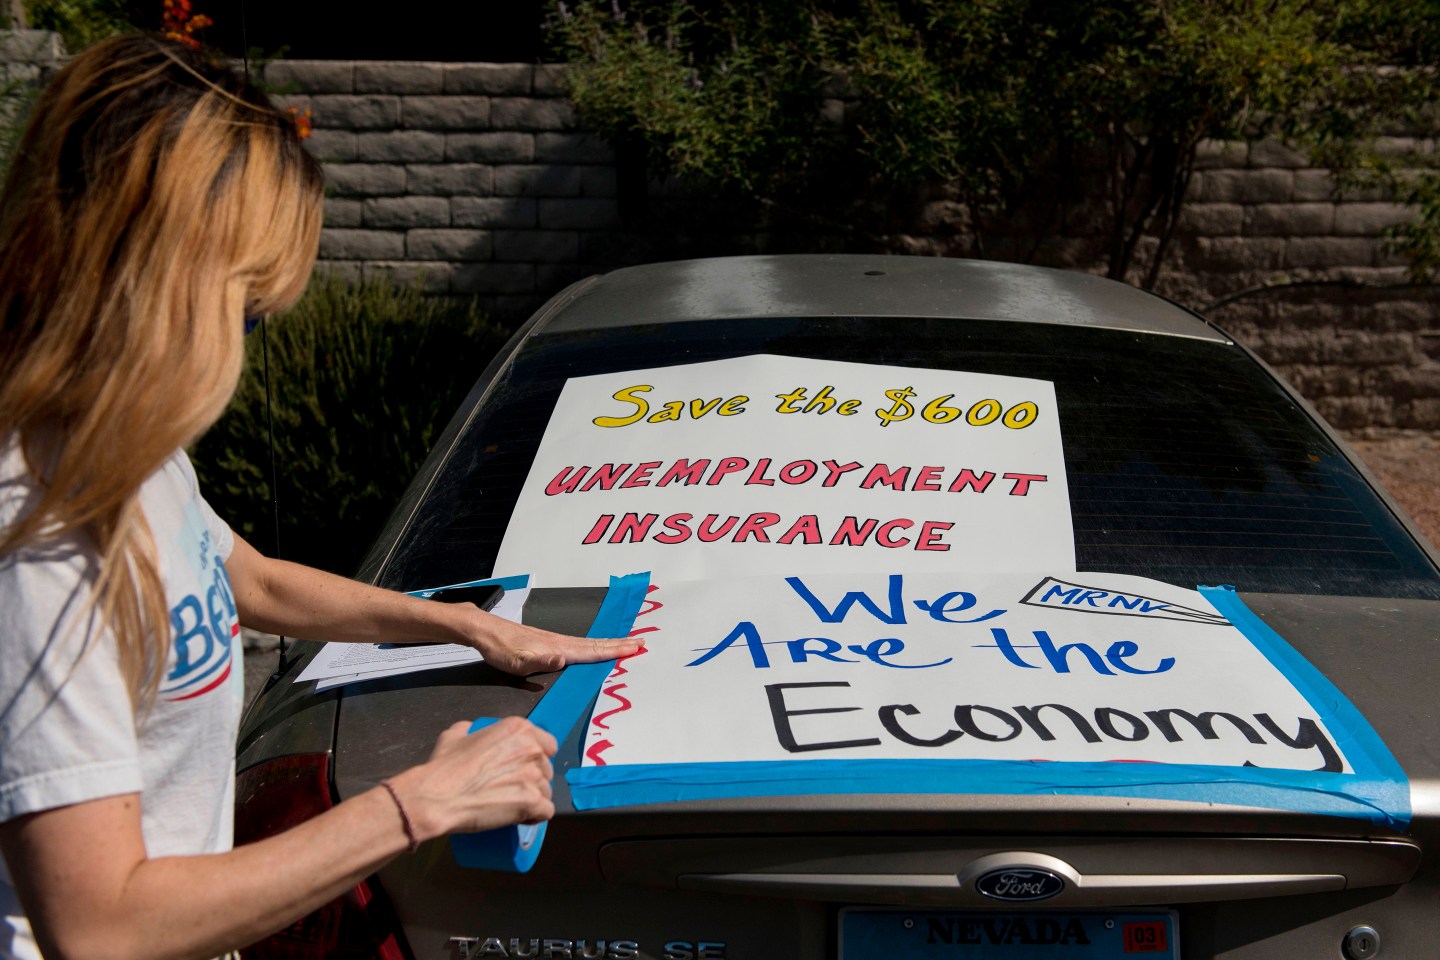 Save the $600
UNEMPLOYMENT
INSURANCE
We
MRNV
Are the
Economy
Ford
TAURUS SE
NEVADA
03